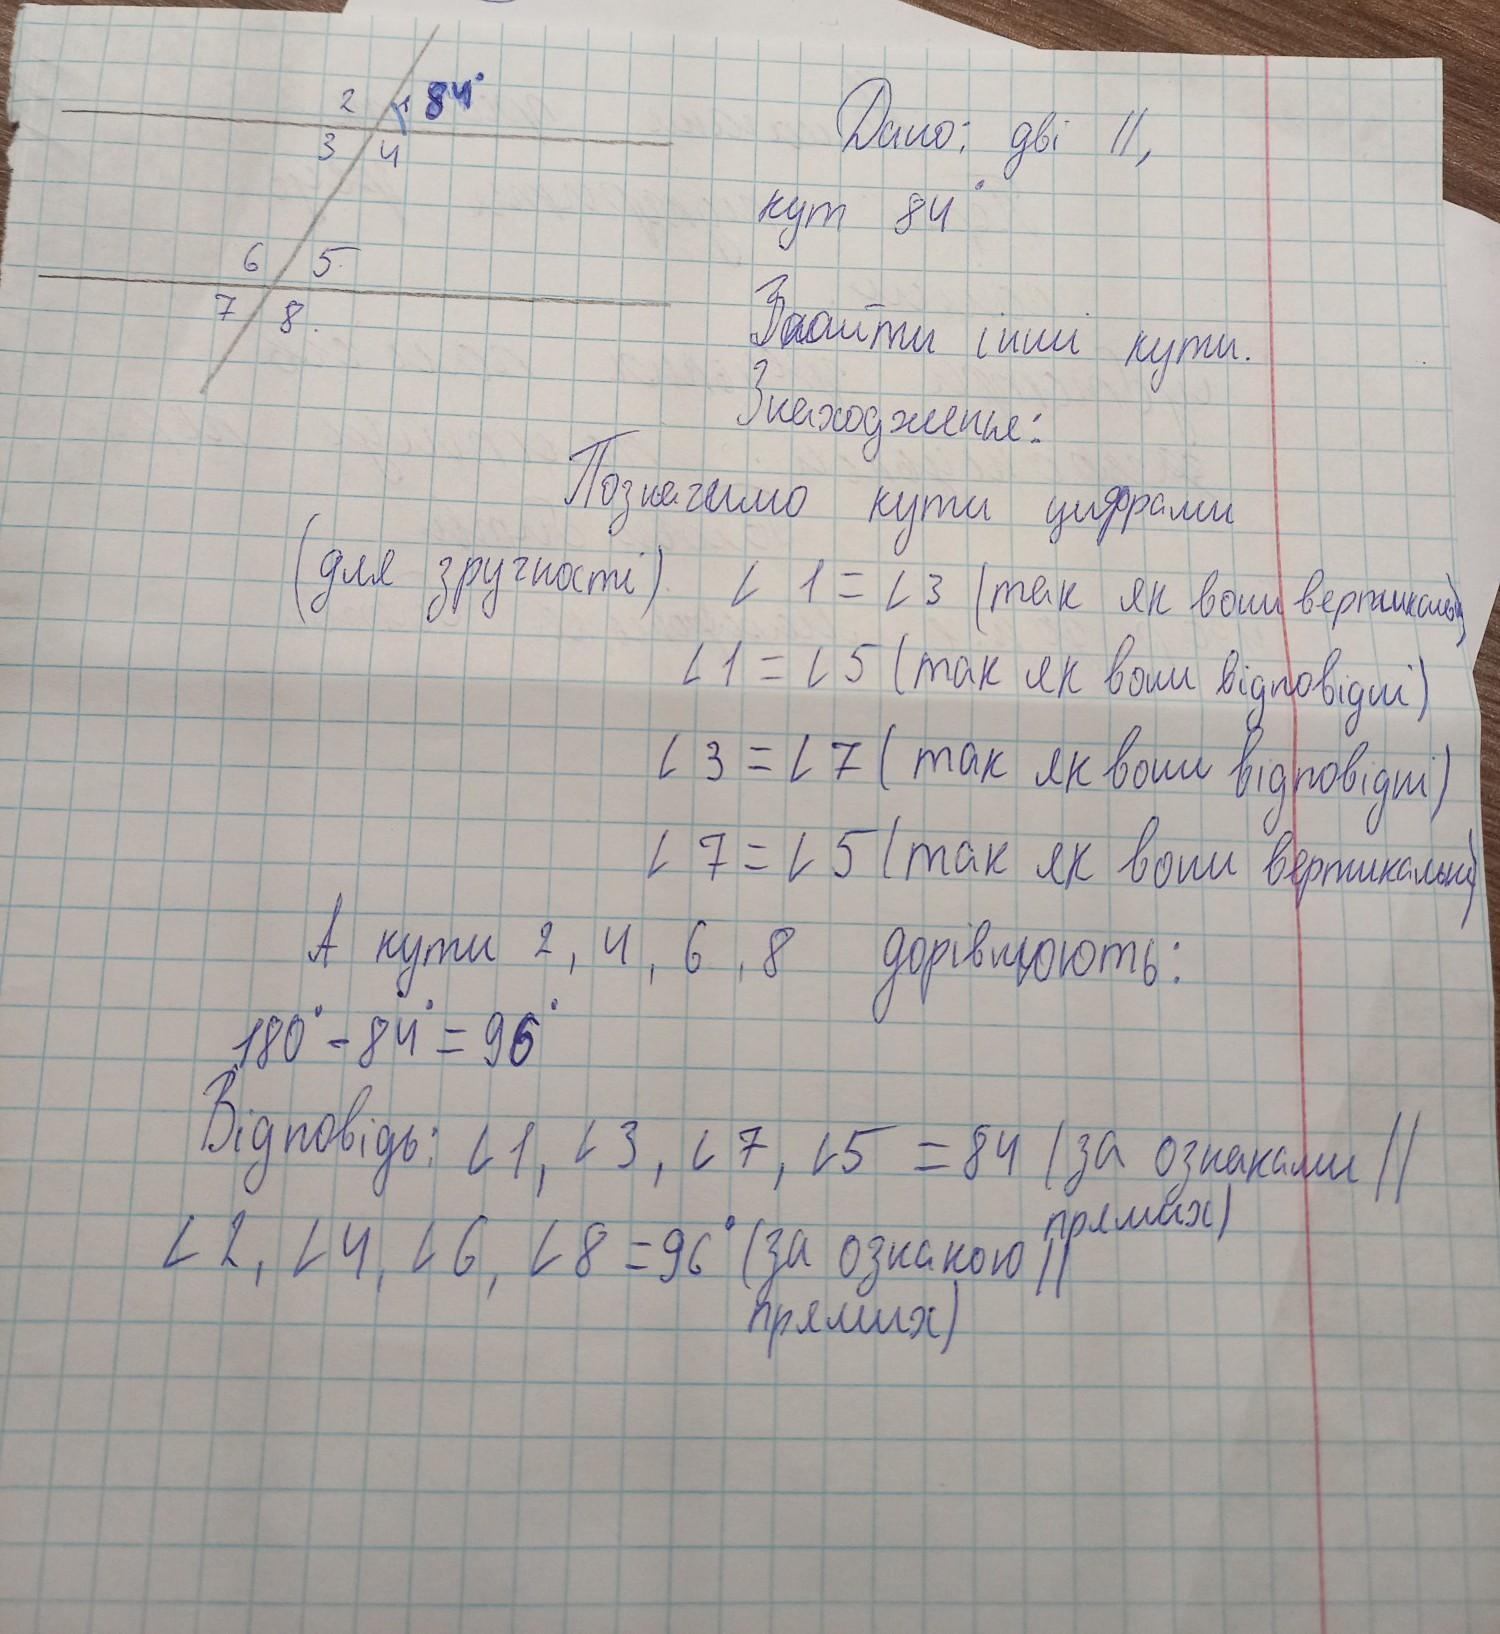 2 1 84°
3 4
6 5
7 8
Дано: дві ||,
кут 84°
Знайти інші кути.
Знаходження:
Позначимо кути цифрами
(для зручності) ∠1=∠3 (так як вони вертикальні)
∠1=∠5 (так як вони відповідні)
∠3=∠7 (так як вони відповідні)
∠7=∠5 (так як вони вертикальні)
А кути 2, 4, 6, 8 дорівнюють:
180°-84°=96°
Відповідь: ∠1, ∠3, ∠7, ∠5 = 84 (за ознаками ||
прямих)
∠2, ∠4, ∠6, ∠8 =96° (за ознакою ||
прямих)